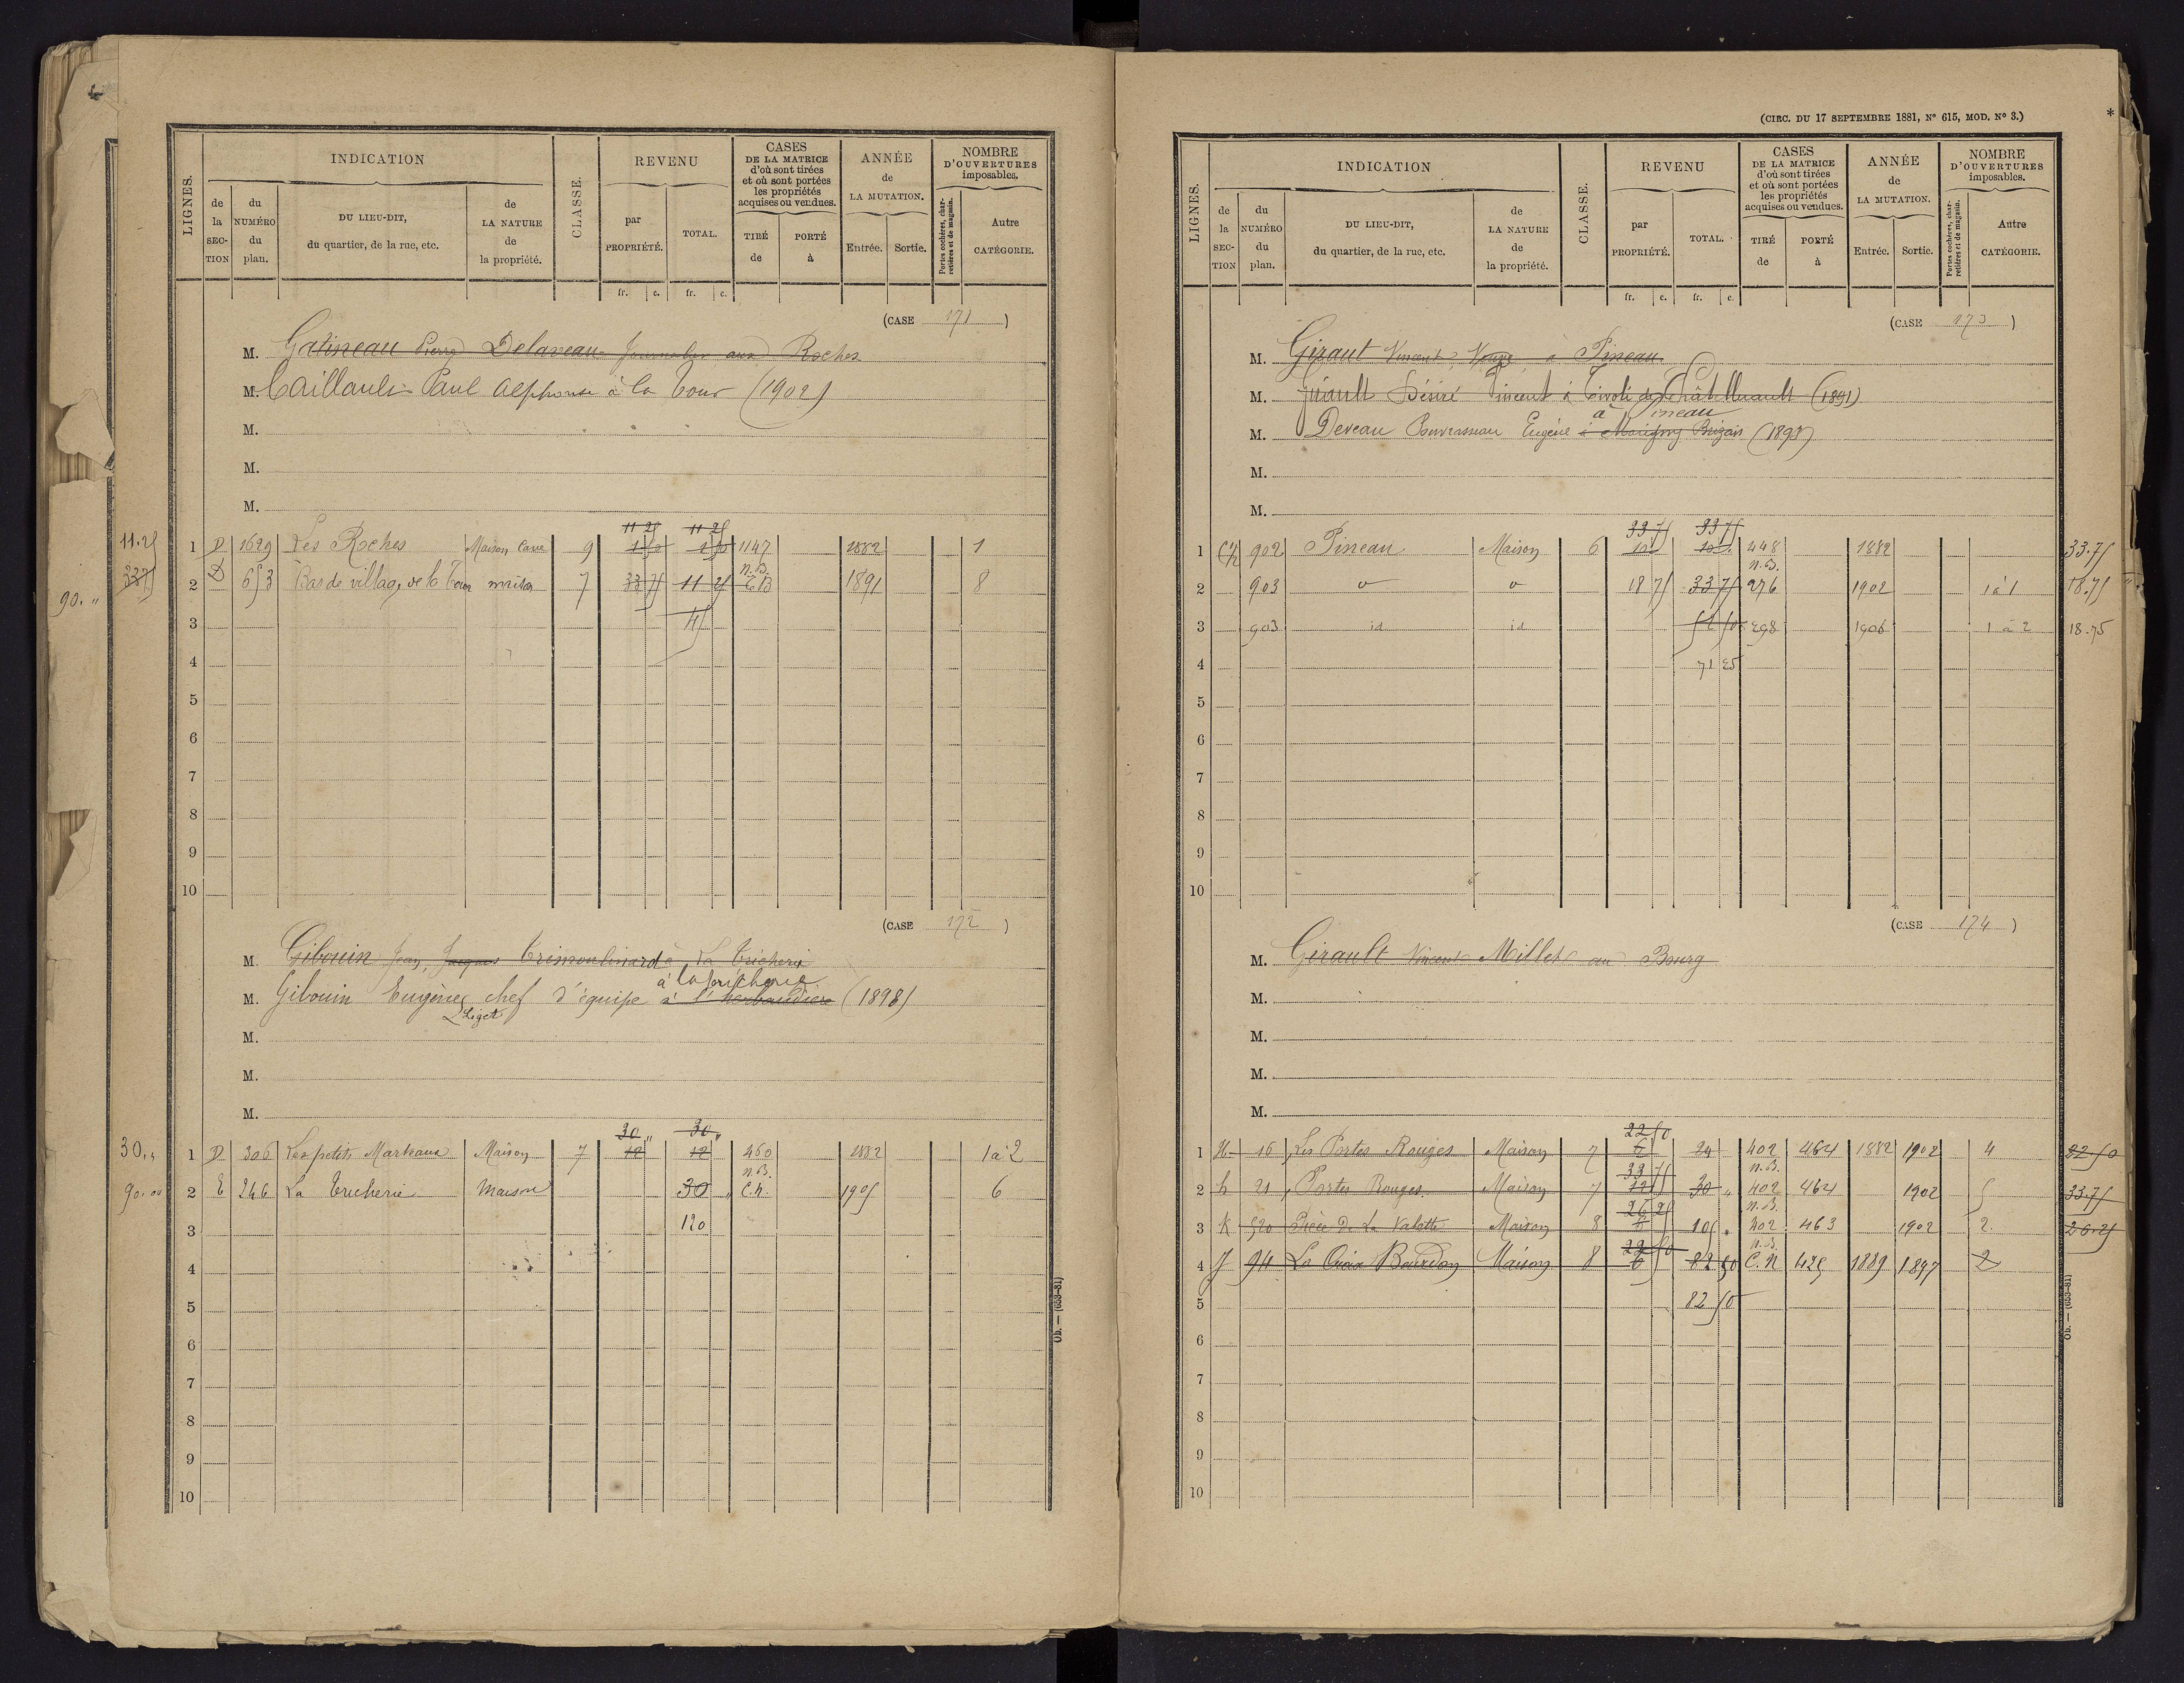 LIGNES. INDICATION CLASSE. REVENU CASES DE LA MATRICE d'où sont tirées et où sont portées les propriétés acquises ou vendues. ANNÉE de LA MUTATION. NOMBRE D'OUVERTURES imposables.
de la SECTION du NUMÉRO du plan. DU LIEU-DIT, du quartier, de la rue, etc. de LA NATURE de la propriété. par PROPRIÉTÉ. TOTAL. TIRÉ de PORTÉ à Entrée. Sortie. Portes cochères, charretières et de magasin. Autre CATÉGORIE.
fr. c. fr. c.
(CASE 171)
M. Gatineau Pierre Delaveau Journalier aux Roches
M. Caillault Paul Alphonse à la Tour (1902)
M.
M.
M.
11 25 11 25
11.25 1 D 1629 Les Roches Maison Cave 9 1 50 1 50 1147 1882 1
n.B.
3375 2 D 653 Bas de village de la Tour maison 7 33 75 11 25 1891 8
90. "
3 45
4
5
6
7
8
9
10
(CASE 172)
M. Gibouin Jean, Jacques Trimoulinard à La Tricherie
à la Tricherie
M. Gibouin Eugène chef d'équipe à l'herbaudière (1898)
Liget
M.
M.
M.
30 " 30 "
30. " 1 D 306 Les petits Marteaux Maison 7 12 12 460 1882 1 à 2
n.B.
90.00 2 E 246 La Tricherie Maison 30 " C.n. 1905 6
3 120
4
5
6
7
8
9
10
Ob. — (653-81)
(CIRC. DU 17 SEPTEMBRE 1881, N° 615, MOD. N° 3.) *
LIGNES. INDICATION CLASSE. REVENU CASES DE LA MATRICE d'où sont tirées et où sont portées les propriétés acquises ou vendues. ANNÉE de LA MUTATION. NOMBRE D'OUVERTURES imposables.
de la SECTION du NUMÉRO du plan. DU LIEU-DIT, du quartier, de la rue, etc. de LA NATURE de la propriété. par PROPRIÉTÉ. TOTAL. TIRÉ de PORTÉ à Entrée. Sortie. Portes cochères, charretières et de magasin. Autre CATÉGORIE.
fr. c. fr. c.
(CASE 173)
M. Giraut Vincent, Veuve à Pineau
M. Girault Désiré Vincent à Tivoli de Châtellerault (1891)
à Pineau
M. Deveau Pouvrasseau Eugène à Marigny Brizay (1893)
M.
M.
33 75 33 75
1 902 Pineau Maison 6 10 10 448 1882 33.75
n.B.
2 903 o o 18 75 33 75 276 1902 1 à 1 18.75
3 903 id id 52 50 298 1906 1 à 2 18.75
4 71 25
5
6
7
8
9
10
(CASE 174)
M. Girault Vincent Millet au Bourg
M.
M.
M.
M.
22 50
1 H 16 Les Portes Rouges Maison 7 6 24 402 464 1882 1902 4 22.50
33 75 n.B.
2 h 21 Portes Rouges Maison 7 12 30 " 402 464 1902 5 33.75
26 25 n.B.
3 K 520 Pièce De La Valette Maison 8 105 " 402 463 1902 2 26.25
22 50 n.B.
4 J 94 La Croix Bourdon Maison 8 6 82 50 C.N 425 1889 1897 2
5 82 50
6
7
8
9
10
Ob. — (653-81)